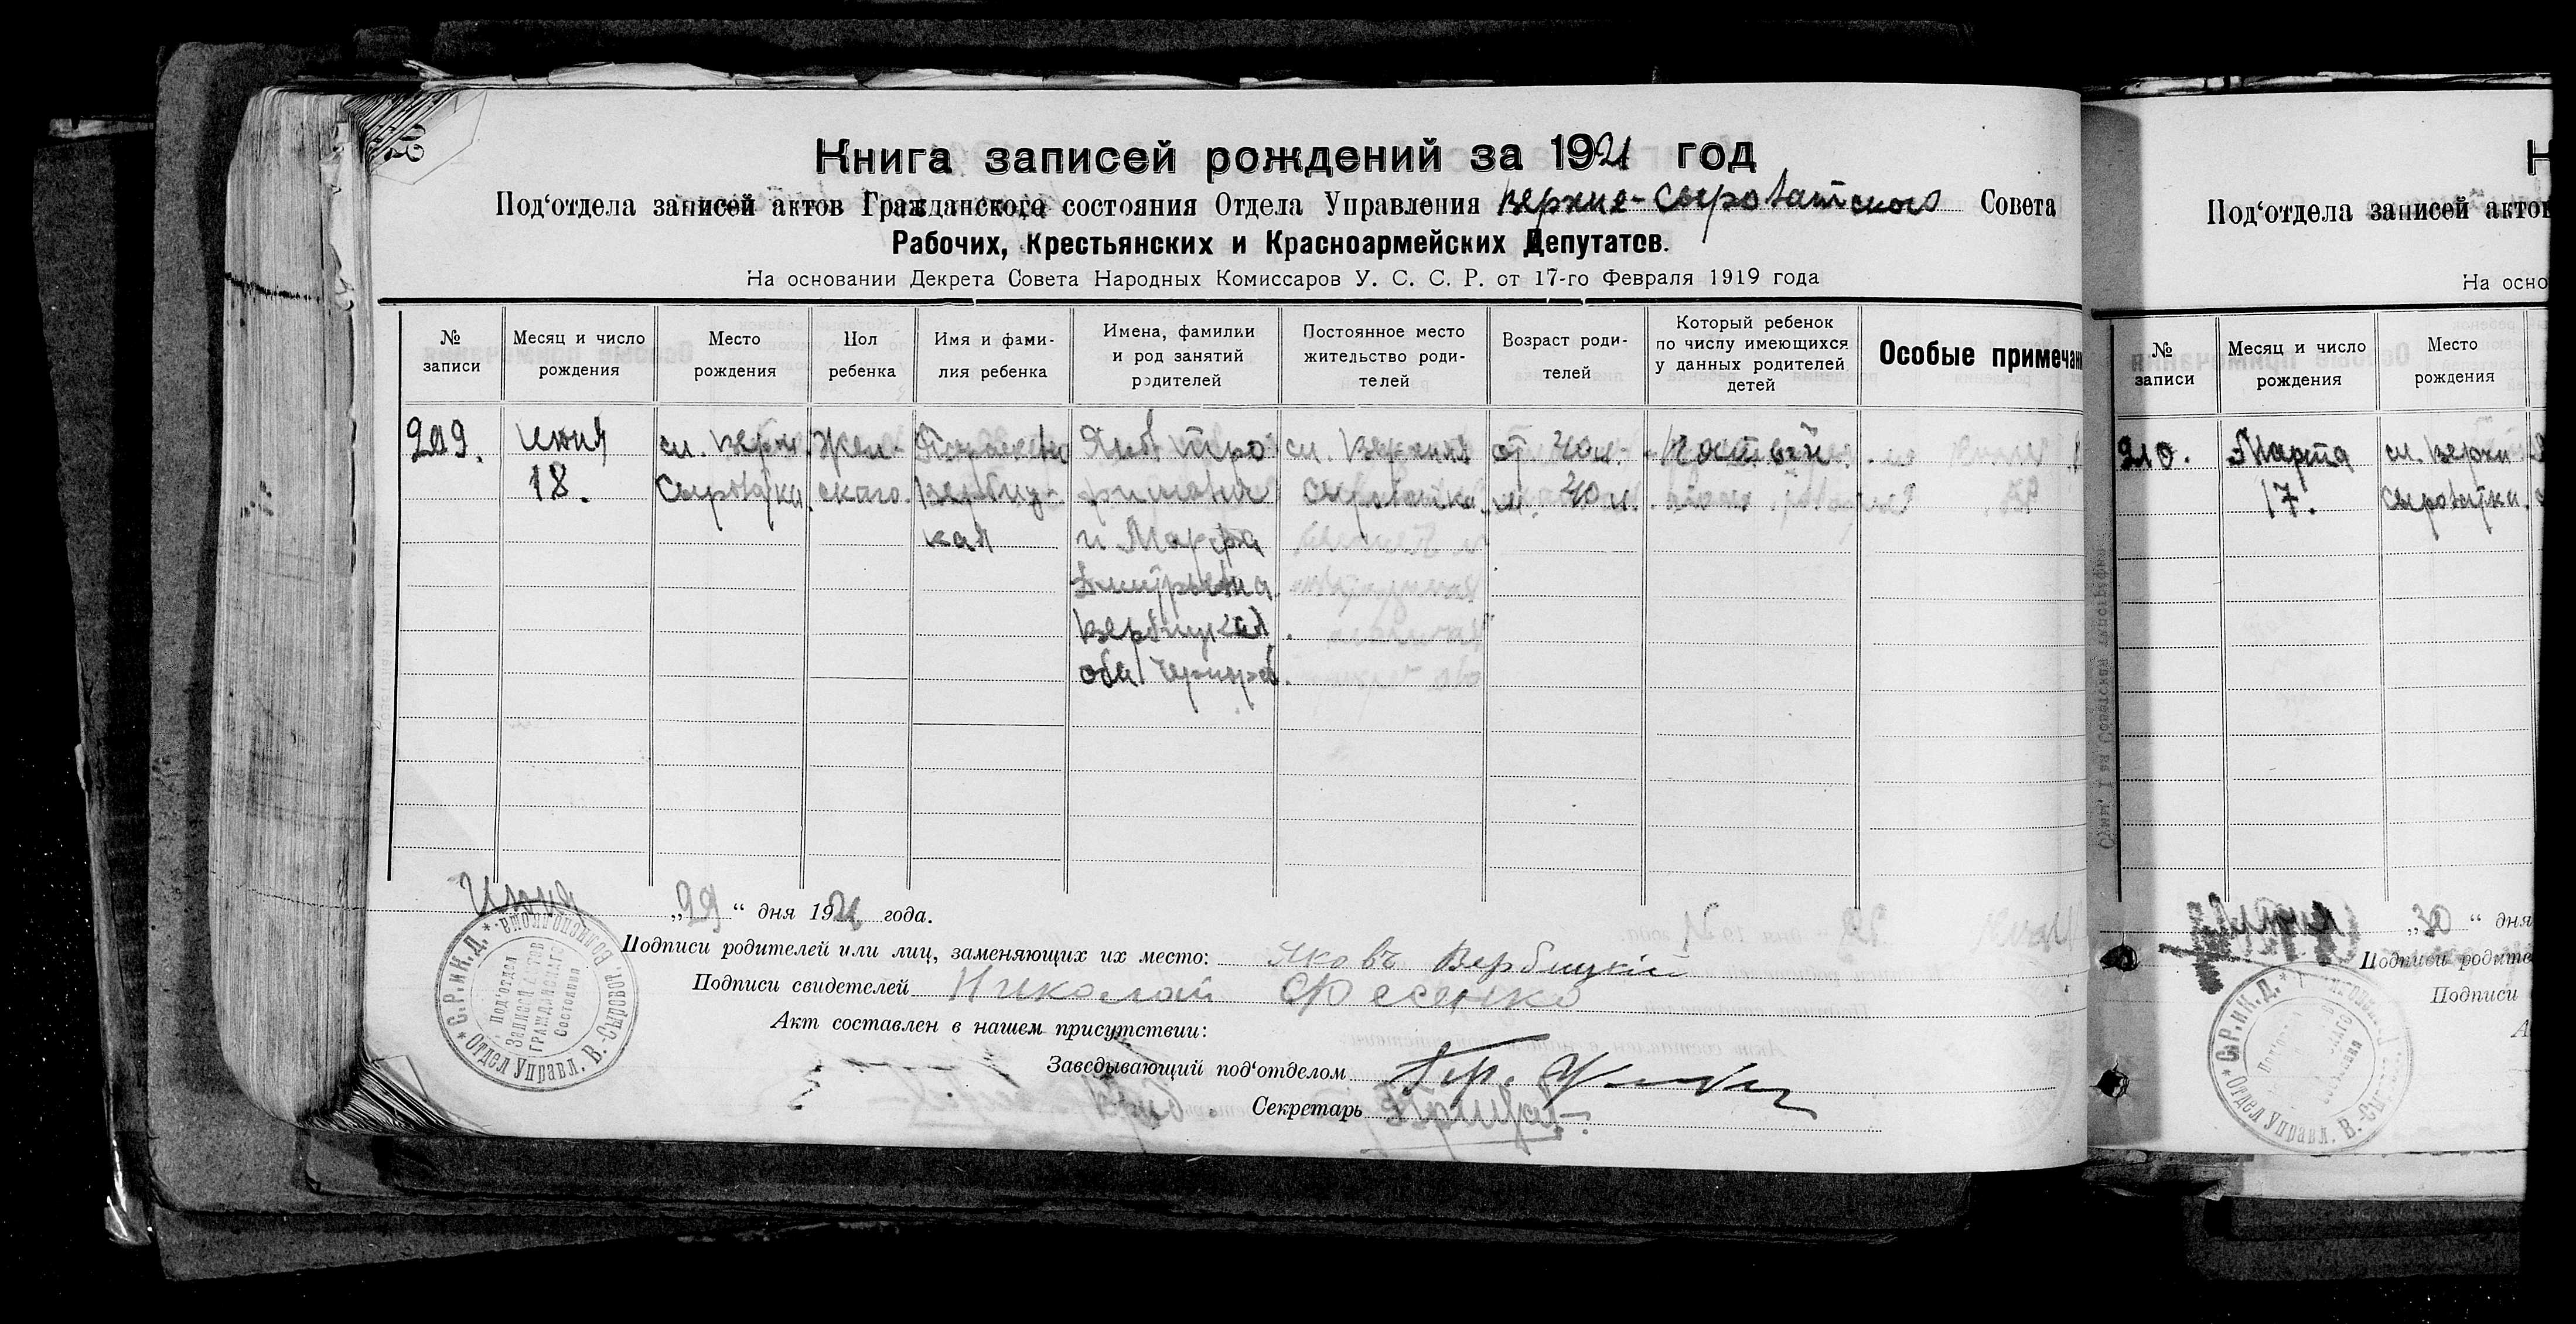 Книга записей рождений за 1921 год
Под'отдела записей актов Гражданского состояния Отдела Управления Верхне-Сыроватского Совета
Рабочих, Крестьянских и Красноармейских Депутатов.
На основании Декрета Совета Народных Комиссаров У. С. С. Р. от 17-го Февраля 1919 года
№ записи
Месяц и число рождения
Место рождения
Пол ребенка
Имя и фамилия ребенка
Имена, фамилии и род занятий родителей
Постоянное место жительство родителей
Возраст родителей
Который ребенок по числу имеющихся у данных родителей детей
Особые примечан
209.
Июня
18.
сл. Верхн
Сыроватки.
Жен-
ского.
Вербиц-
кая
и Марфа
Дмитриевна
Вербицкая
оба
сл. Верхняя
Сыроватка.
от 40 л.
м. 40 л.
Июня „29“ дня 1921 года.
Подписи родителей или лиц, заменяющих их место: Яковъ Вербицкій
Подписи свидетелей Николай Фесенко
Акт составлен в нашем присутствии:
Заведывающий под'отделом
Секретарь
* С.Р.и К.Д. *
Отдел Управл. В.-Сыроват. Волисполкома
Под'отдел
Записей актов
Гражданского
Состояния
Н
Под'отдела записей актов
На осно
№ записи
Месяц и число рождения
Место рождения
210.
Марта
17.
сл. Верхн
Сыроватки.
„30“ дня
Подписи родите
Подписи
А
* С.Р.и К.Д. *
Отдел Управл. В.-Сы